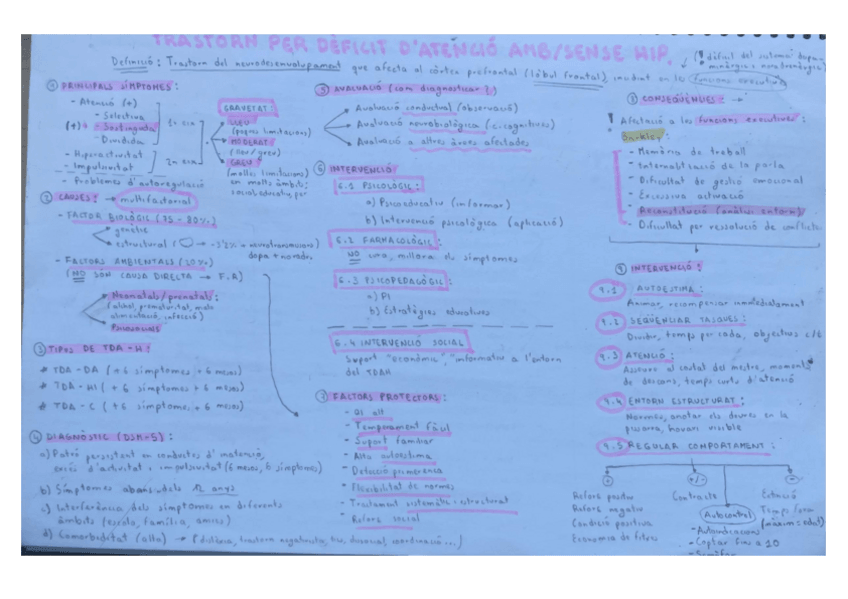 TRASTORN PER DÈFICIT D'ATENCIÓ AMB/SENSE HIP.
Definició: Trastorn del neurodesenvolupament que afecta al còrtex prefrontal (lòbul frontal), incidint en les funcions executives
(dèficil del sistema dopaminèrgic i noradrenèrgic)
① PRINCIPALS SÍMPTOMES:
- Atenció (+)
- Selectiva
(+) - Sostinguda
- Dividida
- Hiperactivitat
- Impulsivitat
- Problemes d'autoregulació
GRAVETAT:
LLEU
(poques limitacions)
MODERAT
(lleu/greu)
GREU
(moltes limitacions)
en molts àmbits:
social, educatiu, per
② CAUSES: → multifactorial
- FACTOR BIOLÒGIC (75-80%)
genètic
estructural
dopa + noradr.
- FACTORS AMBIENTALS (20%)
(NO SÓN CAUSA DIRECTA → F.R)
Neonatals/prenatals:
(alcohol, prematuritat, mala
alimentació, infecció)
PSICOSOCIALS
③ TIPOS DE TDA-H:
* TDA-DA (+6 símptomes +6 mesos)
* TDA-HI (+6 símptomes +6 mesos)
* TDA-C (+6 símptomes +6 mesos)
④ DIAGNÒSTIC (DSM-5):
a) Patró persistent en conductes d'inatenció,
excés d'activitat i impulsivitat (6 mesos, 6 símptomes)
b) Símptomes abans dels 12 anys
c) Interferència dels símptomes en diferents
àmbits (escola, família, amics)
d) Comorbiditat (alta) → (dislèxia, trastorn negativista, tic, dissocial, coordinació...)
⑤ AVALUACIÓ (com diagnosticar?)
Avaluació conductual (observació)
Avaluació neurobiològica (c. cognitives)
Avaluació a altres àrees afectades
⑥ INTERVENCIÓ
6.1 PSICOLÒGIC:
a) Psicoeducatiu (informar)
b) Intervenció psicològica (aplicació)
6.2 FARMACOLÒGIC:
NO cura, millora els símptomes
6.3 PSICOPEDAGÒGIC:
a) PI
b) Estratègies educatives
6.4 INTERVENCIÓ SOCIAL
Suport "econòmic", "informatiu a l'entorn
del TDAH
⑦ FACTORS PROTECTORS:
- QI alt
- Temperament fàcil
- Suport familiar
- Alta autoestima
- Detecció primerenca
- Flexibilitat de normes
- Tractament sistemàtic-estructurat
- Reforç social
⑧ CONSEQÜÈNCIES:
Afectació a les funcions executives:
Barkley
- Memòria de treball
- Internalització de la parla
- Dificultat de gestió emocional
- Excessiva activació
- Reconstitució (anàlisi entorn)
- Dificultat per resolució de conflictes
⑨ INTERVENCIÓ:
9.1 AUTOESTIMA:
Animar, recompensar immediatament
9.2 SEQÜENCIAR TASQUES:
Dividir, temps per cada, objectius c/t
9.3 ATENCIÓ:
Asseure al costat del mestre, moments
de descans, temps curts d'atenció
9.4 ENTORN ESTRUCTURAT:
Normes, anotar els deures en la
pissarra, horari visible
9.5 REGULAR COMPORTAMENT:
+
+/-
-
Reforç positiu
Reforç negatiu
Condició positiva
Economia de fitxes
Contracte
Autocontrol
- Autoindicacions
- Comptar fins a 10
- Semàfor
Extinció
Temps fora
(màxim: edat)